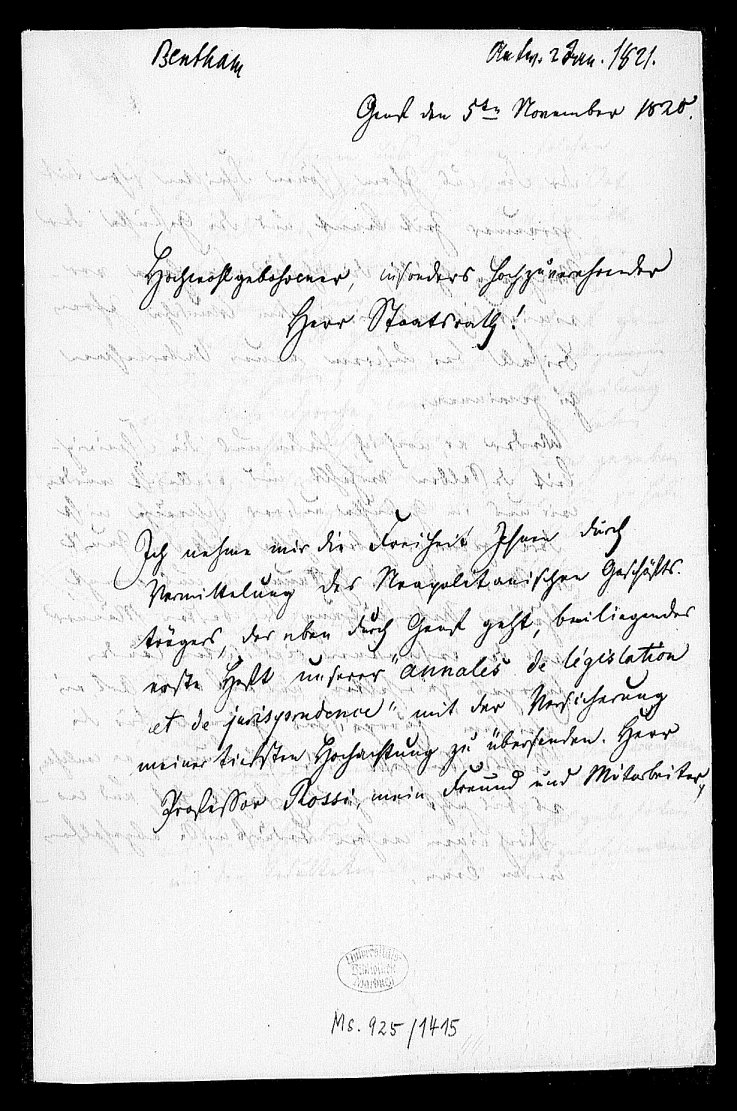 Bentham
Antw. 2 Jan. 1821.
Genf den 5ten November 1820.
Hochwohlgebohrener, insonders Hochzuverehrender
Herr Staatsrath!
Ich nehme mir die Freiheit Ihnen durch
Vermittelung des Neapolitanischen Geschäfts-
trägers, der eben durch Genf geht, beiliegendes
erste Heft unserer "annales de législation
et de jurisprudence" mit der Versicherung
meiner tiefsten Hochachtung zu übersenden. Herr
Professor Rossi, mein Freund und Mitarbeiter,
Universitäts-
Bibliothek
Marburg
Ms. 925/1415